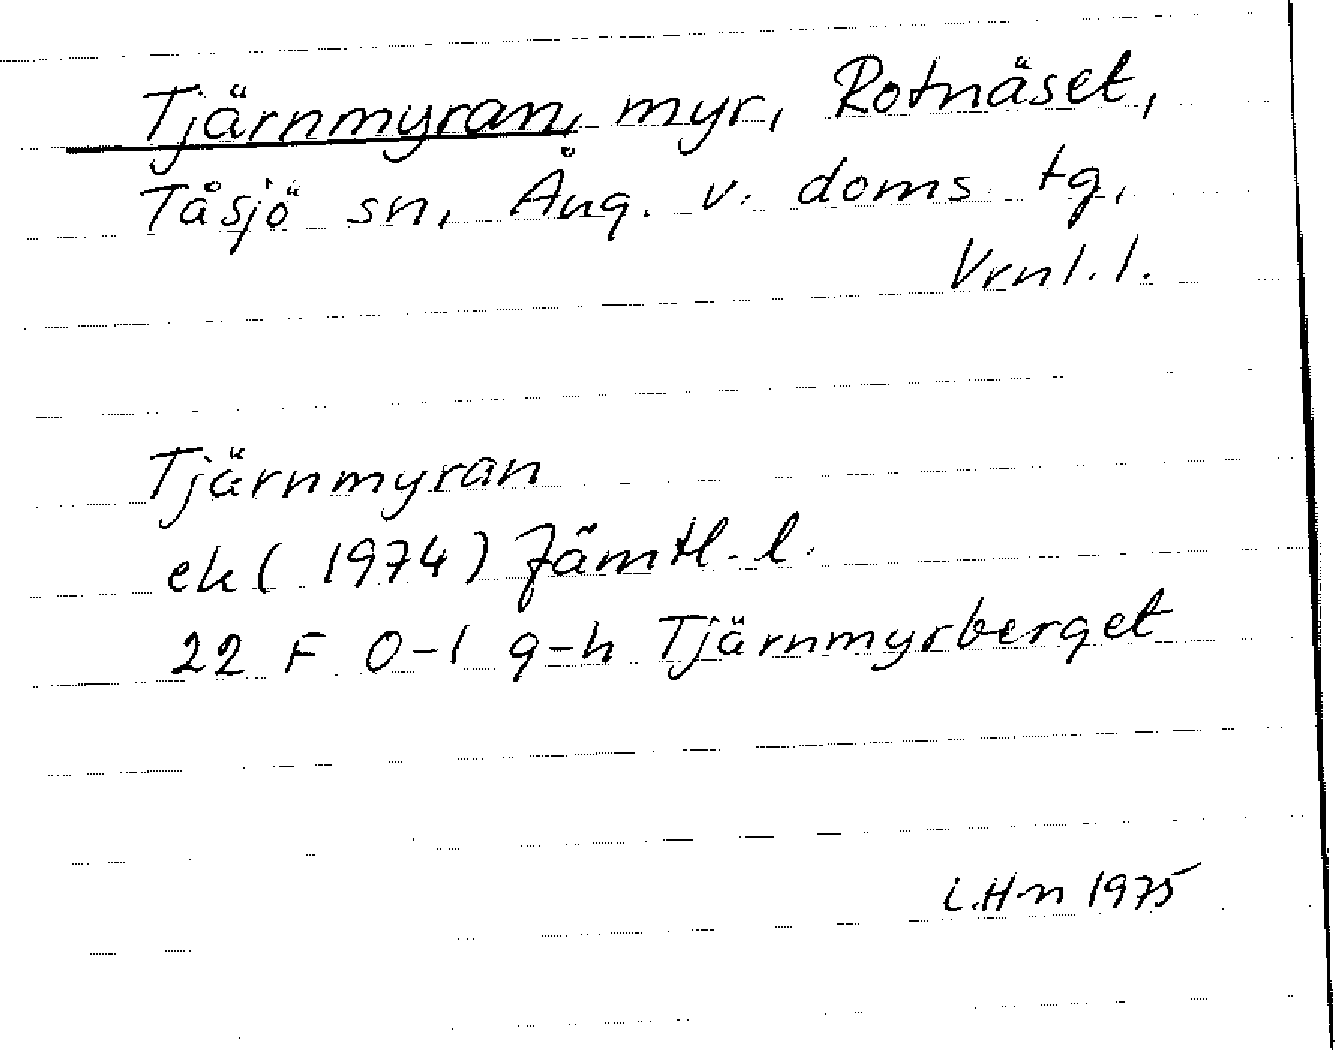 Tjärnmyran, myr, Rotnäset,
Tåsjö sn, Ång. v. doms tg,
Vrnl. l.
Tjärnmyran
ek (1974) Jämtl. l.
22 F 0-1 g-h Tjärnmyrberget
L.Hn 1975